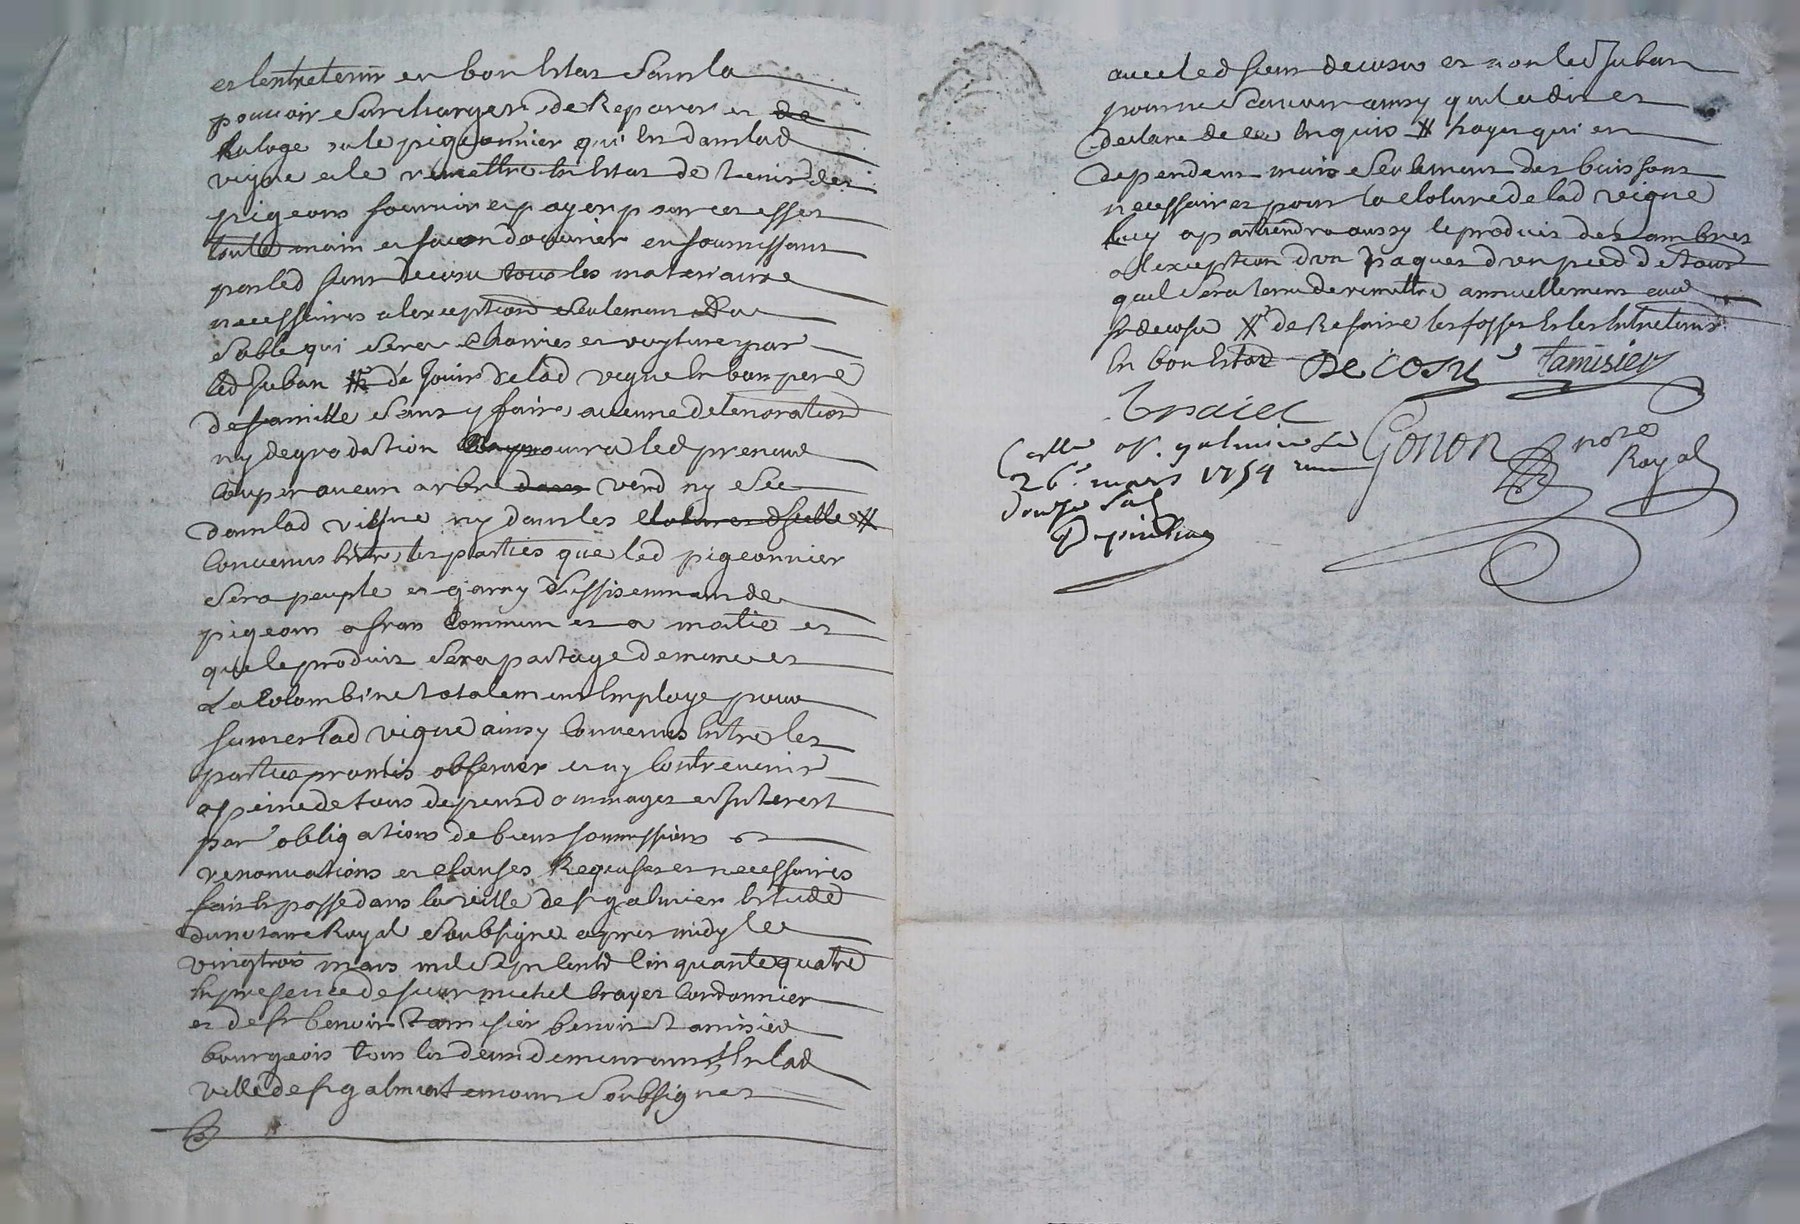 et lentretenir en bon Estat Sans la
pouvoir Surcharger de Reparer et de
le pigeonnier qui Est dans lad
vigne et le remettre En Estat de tenir des
pigeons fournir et payer pour ces effet
toute main et facon douvrier en fournissant
par led Sieur decosu tous les materiaux
necessaires alexception Seulement du
Sable qui Sera Charriés et voyture par
led Juban # de Jouir de lad vigne En bon pere
de famille Sans y faire aucune deterioration
ny degradation pourra led preneur
Couper aucun arbre dans verd ny Sec
dans lad vigne ny dans les Clotures dicelle #
Convenus Entre les parties que led pigeonnier
Sera peuple et garny Suffisemment de
pigeons a frais Commun et a moitié et
que le produit Sera partage de meme et
La Colombine totalement Employe pour
fumer lad vigne ainsy Convenus Entre les
parties promis observer et ny Contrevenir
a peine de tous depens dommages et Interest
par obligations de biens soumissions et
renonciations et clauses Requises et necessaires
fait et passe dans la ville de st galmier Etude
du notaire Royal Soubsigne apres midy le
vingtrois mars mil Sept Cents Cinquante quatre
En presence de sieur michel brayet Cordonnier
et de sr benoit tamisier benoit tamisier
bourgeois tous les deux demeurants En lad
ville de st galmier temoins Soubsignes
avec led sieur decosu et non led Juban
pour ne Scavoir ainsy quil a dit et
declare de ce Enquis # hayes qui en
dependent mais Seulement des buissons
necessaires pour la cloture de lad vigne
luy apartiendra aussy le produit des arbres
a lexception dun paquet dun pied de tour
quil Sera tenu de remettre annuellement aud
sr decosu # de Refaire les fosses Et les Entretenir
En bon Estat De Cosu tamisier
braiet
Gonon notre
Royal
Collé a st galmier le
26e mars 1754
douze Sols